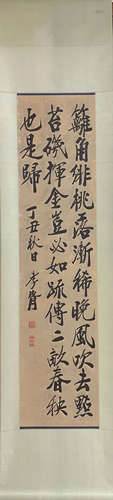 籬角緋桃落漸稀晚風吹去點
苔磯揮金豈必如疏傅二畝春秧
也是歸
丁丑秋日 孝胥